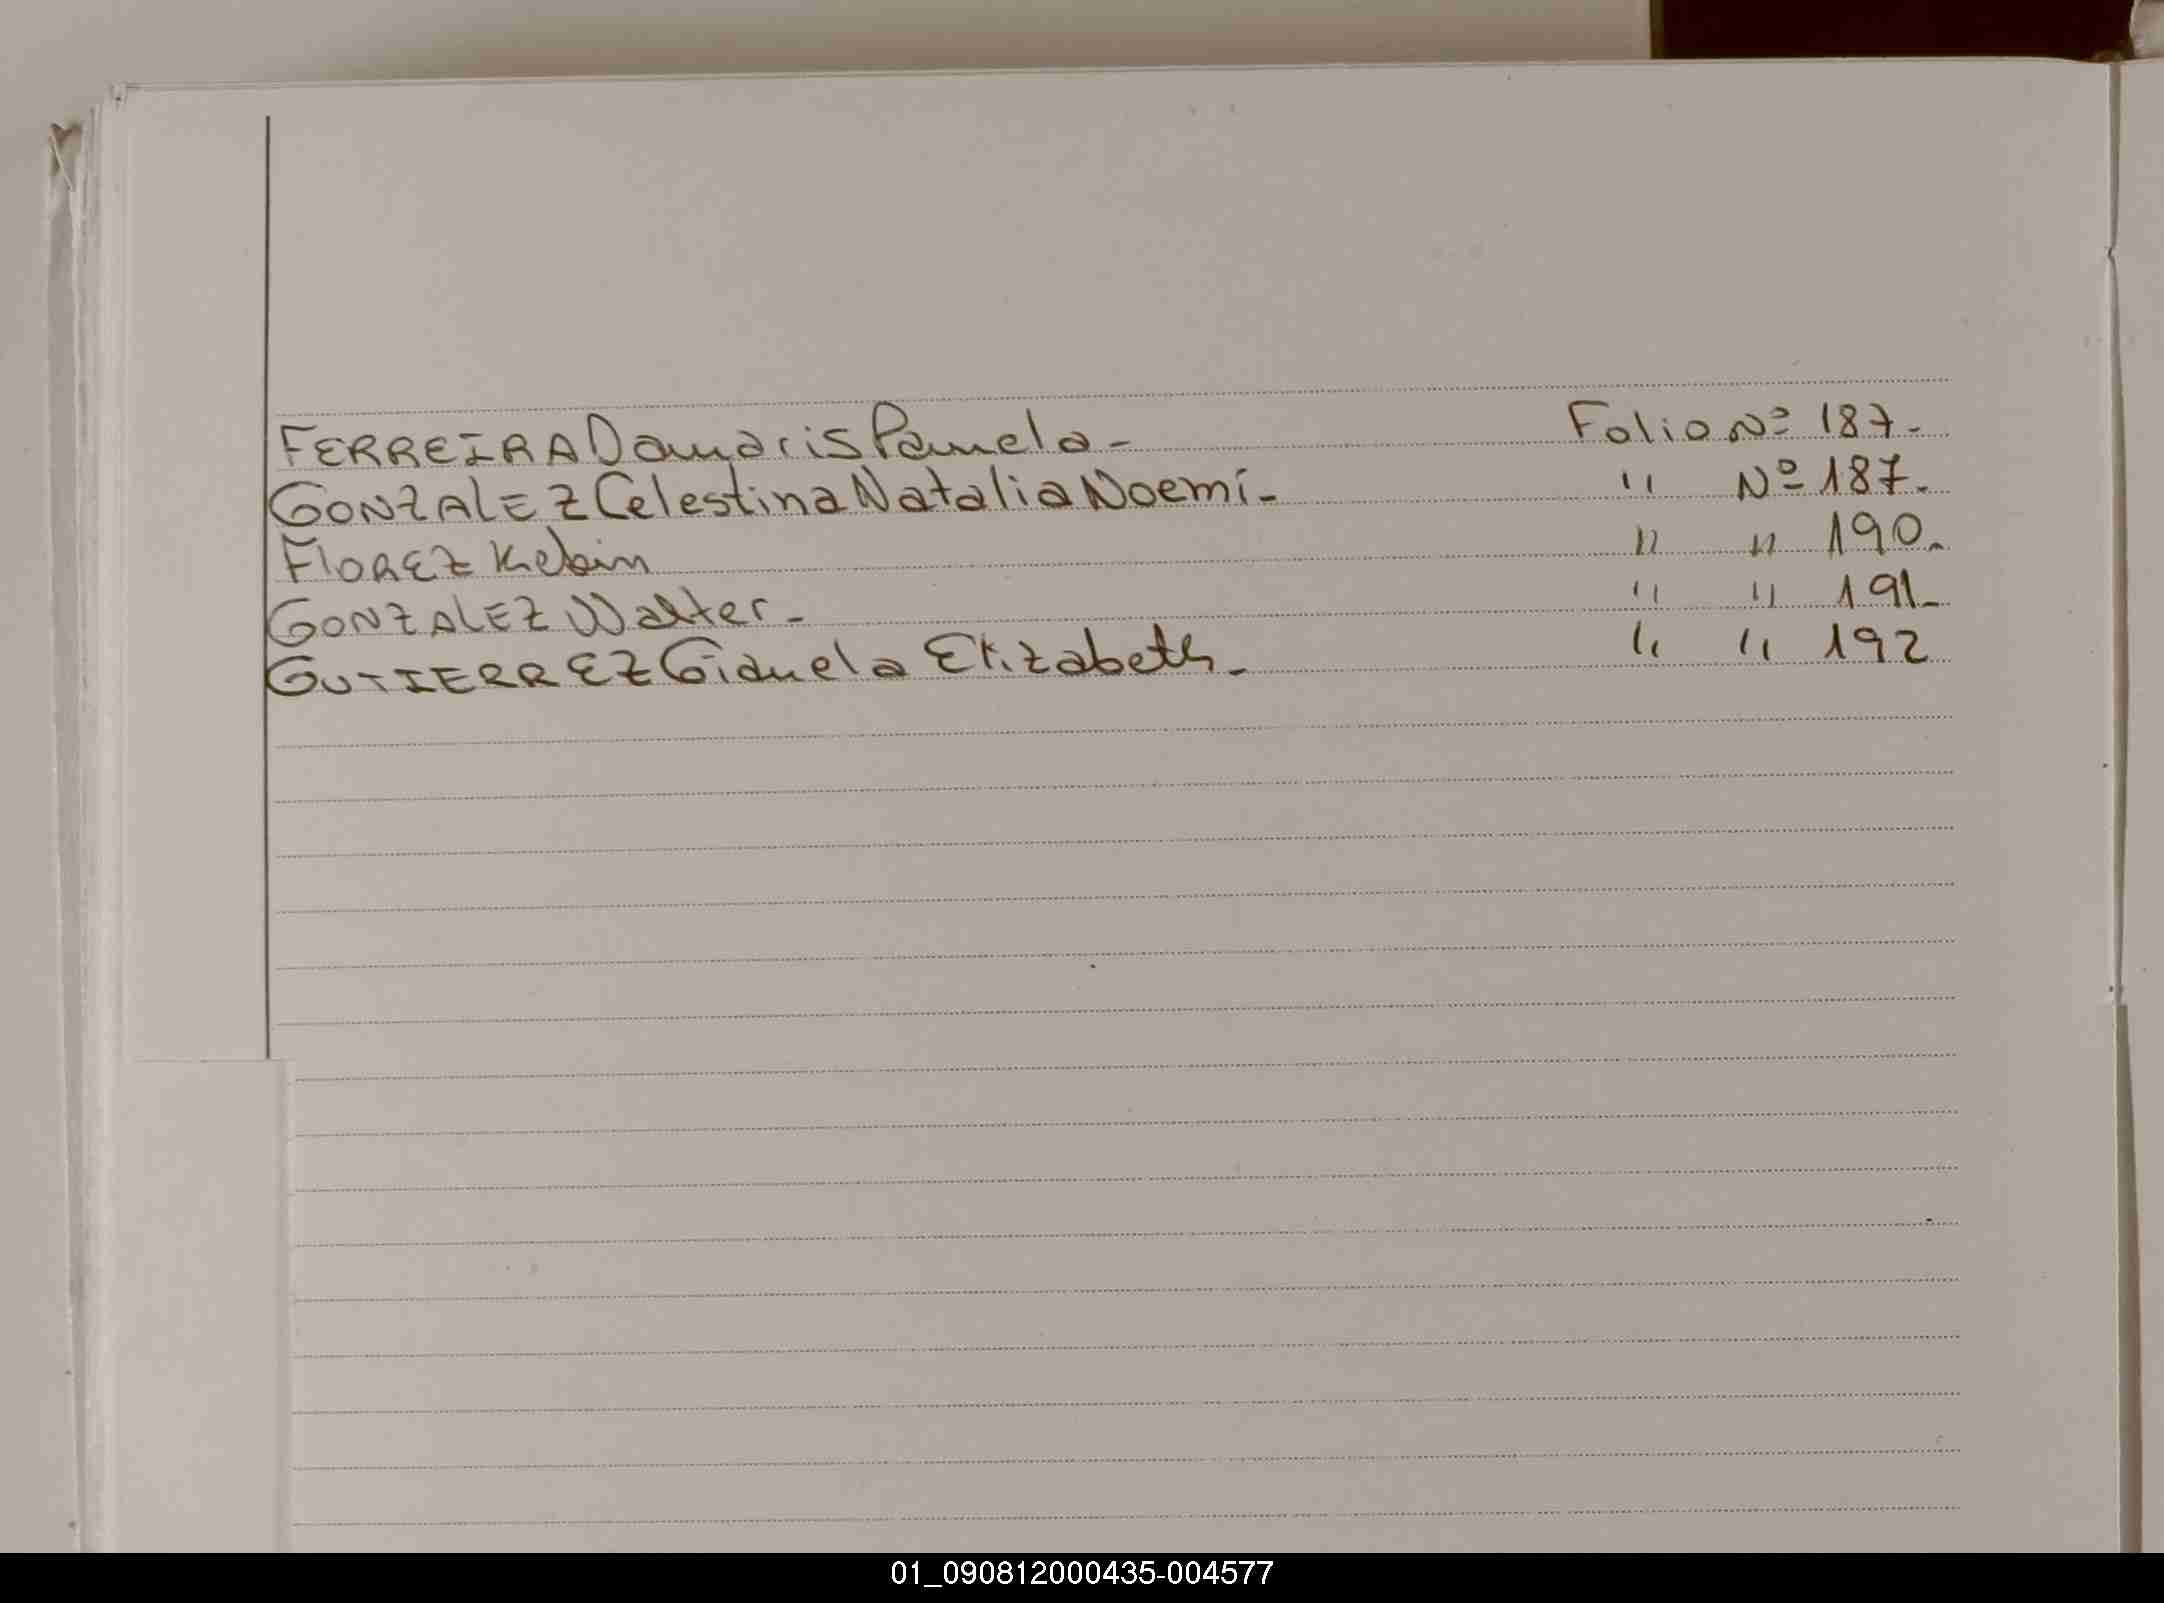 FERREIRA Damaris Pamela- Folio Nº 187-
GONZALEZ Celestina Natalia Noemí- " Nº 187-
FLOREZ Kebin " " 190-
GONZALEZ Walter- " " 191-
GUTIERREZ Gianela Elizabeth- " " 192
01_090812000435-004577